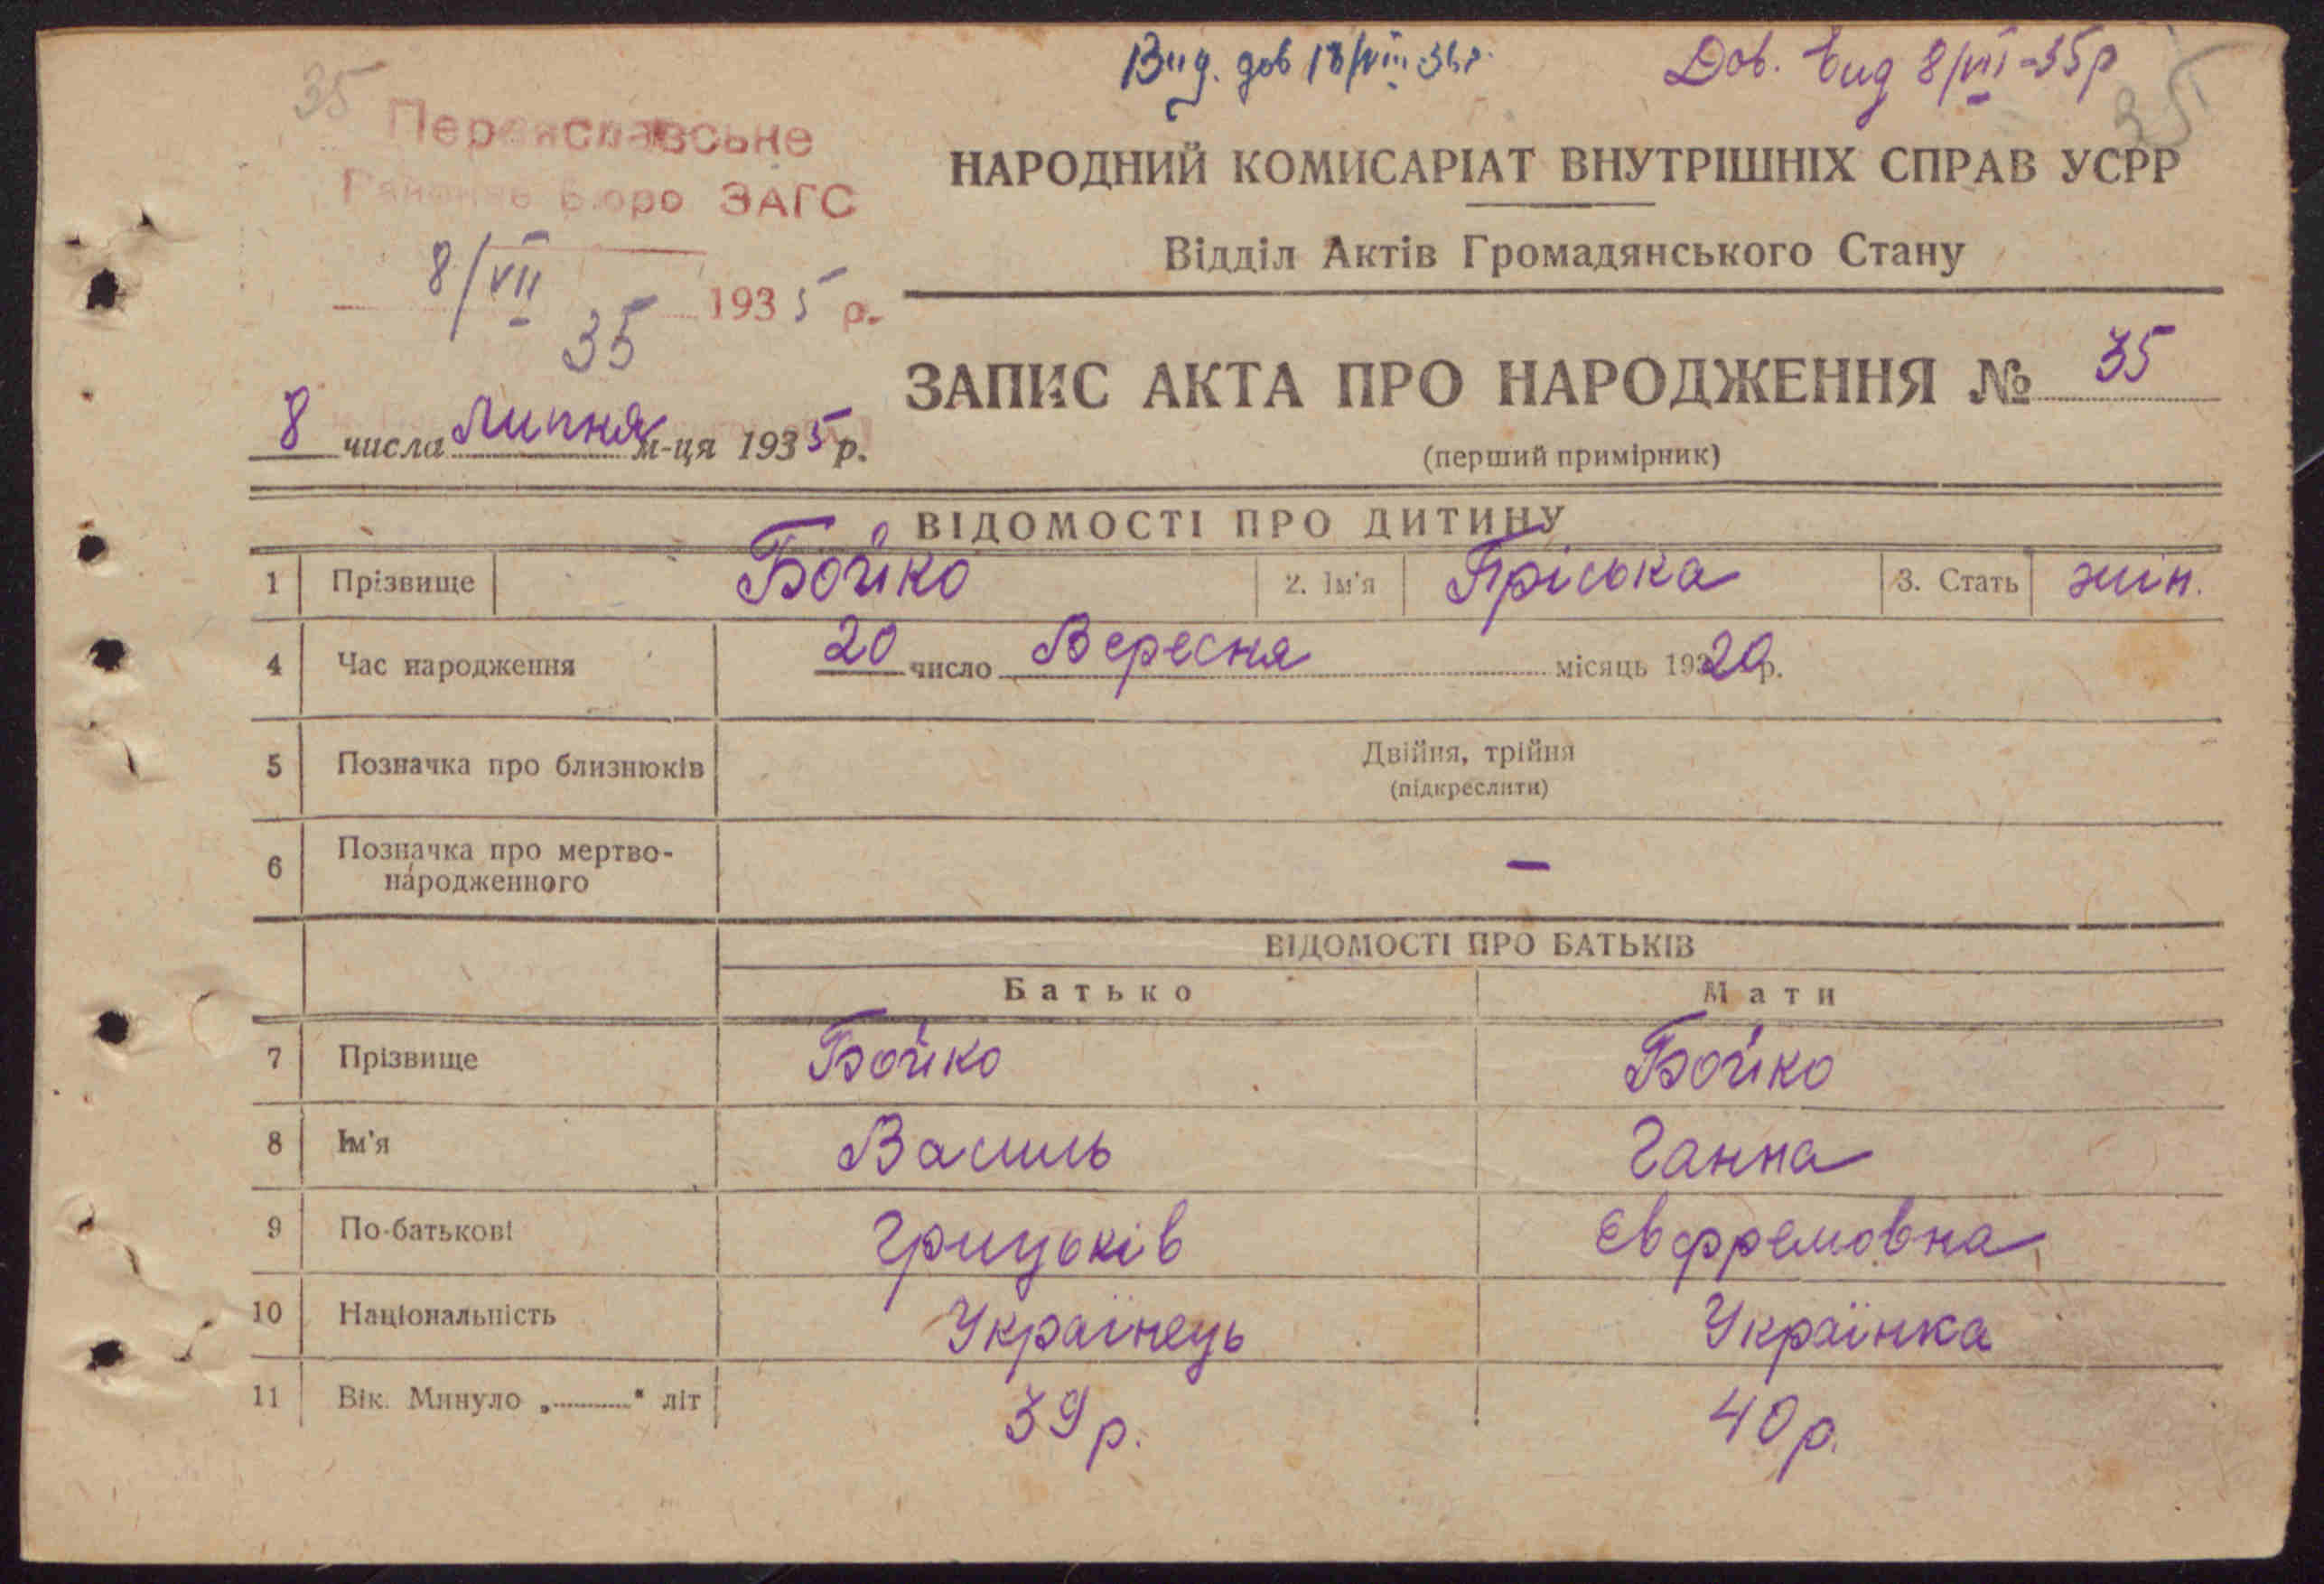 Вид. дов 18/VIII-36р. Дов. вид 8/VII-35р
35 35
Переяславське
Районне Бюро ЗАГС
8/VII 1935 р.
35
НАРОДНИЙ КОМИСАРІАТ ВНУТРІШНІХ СПРАВ УСРР
Відділ Актів Громадянського Стану
ЗАПИС АКТА ПРО НАРОДЖЕННЯ № 35
8 числа Липня м-ця 1935 р.
(перший примірник)
ВІДОМОСТІ ПРО ДИТИНУ
1 Прізвище Бойко 2. Ім'я Пріська 3. Стать жін.
4 Час народження 20 число Вересня місяць 1920р.
5 Позначка про близнюків Двійня, трійня
(підкреслити)
6 Позначка про мертво-
народженного —
ВІДОМОСТІ ПРО БАТЬКІВ
Батько Мати
7 Прізвище Бойко Бойко
8 Ім'я Василь Ганна
9 По-батькові Грицьків Евфремовна
10 Національність Українець Українка
11 Вік. Минуло „..........“ літ 39 р. 40 р.